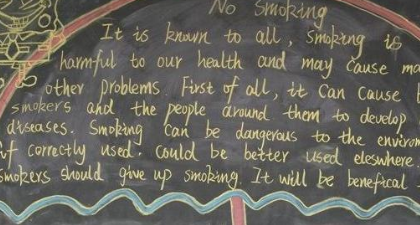 No Smoking
It is known to all, smoking is
harmful to our health and may cause ma
other problems. First of all, it can cause
smokers and the people around them to develop
diseases. Smoking can be dangerous to the environ
if correctly used. could be better used eleswhere.
smokers should give up smoking. It will be benefical